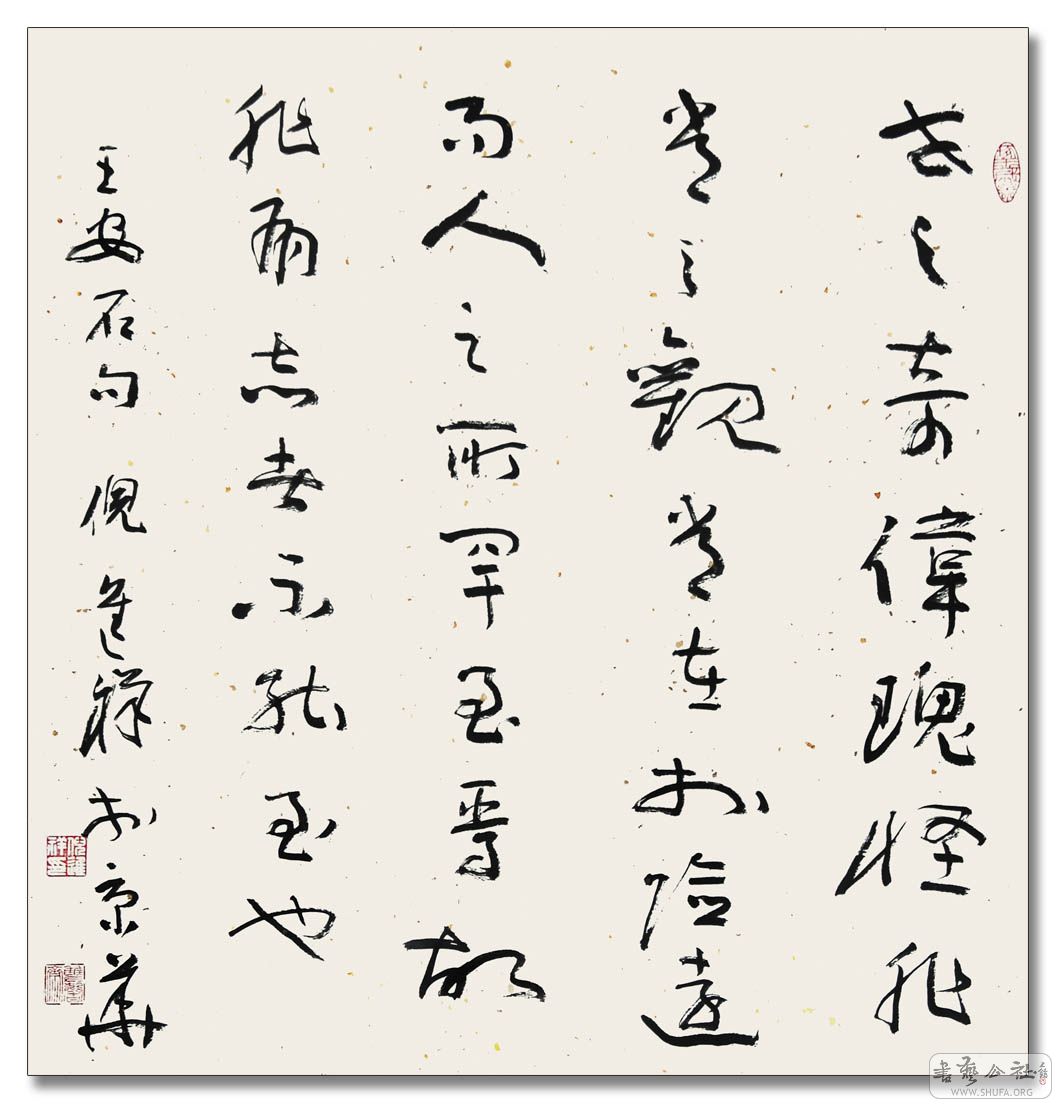 世之奇偉瑰怪非
常之觀常在於險遠
而人之所罕至焉故
非有志者不能至也
王安石句 倪進祥於京華
倪進祥印
書藝公社
WWW.SHUFA.ORG